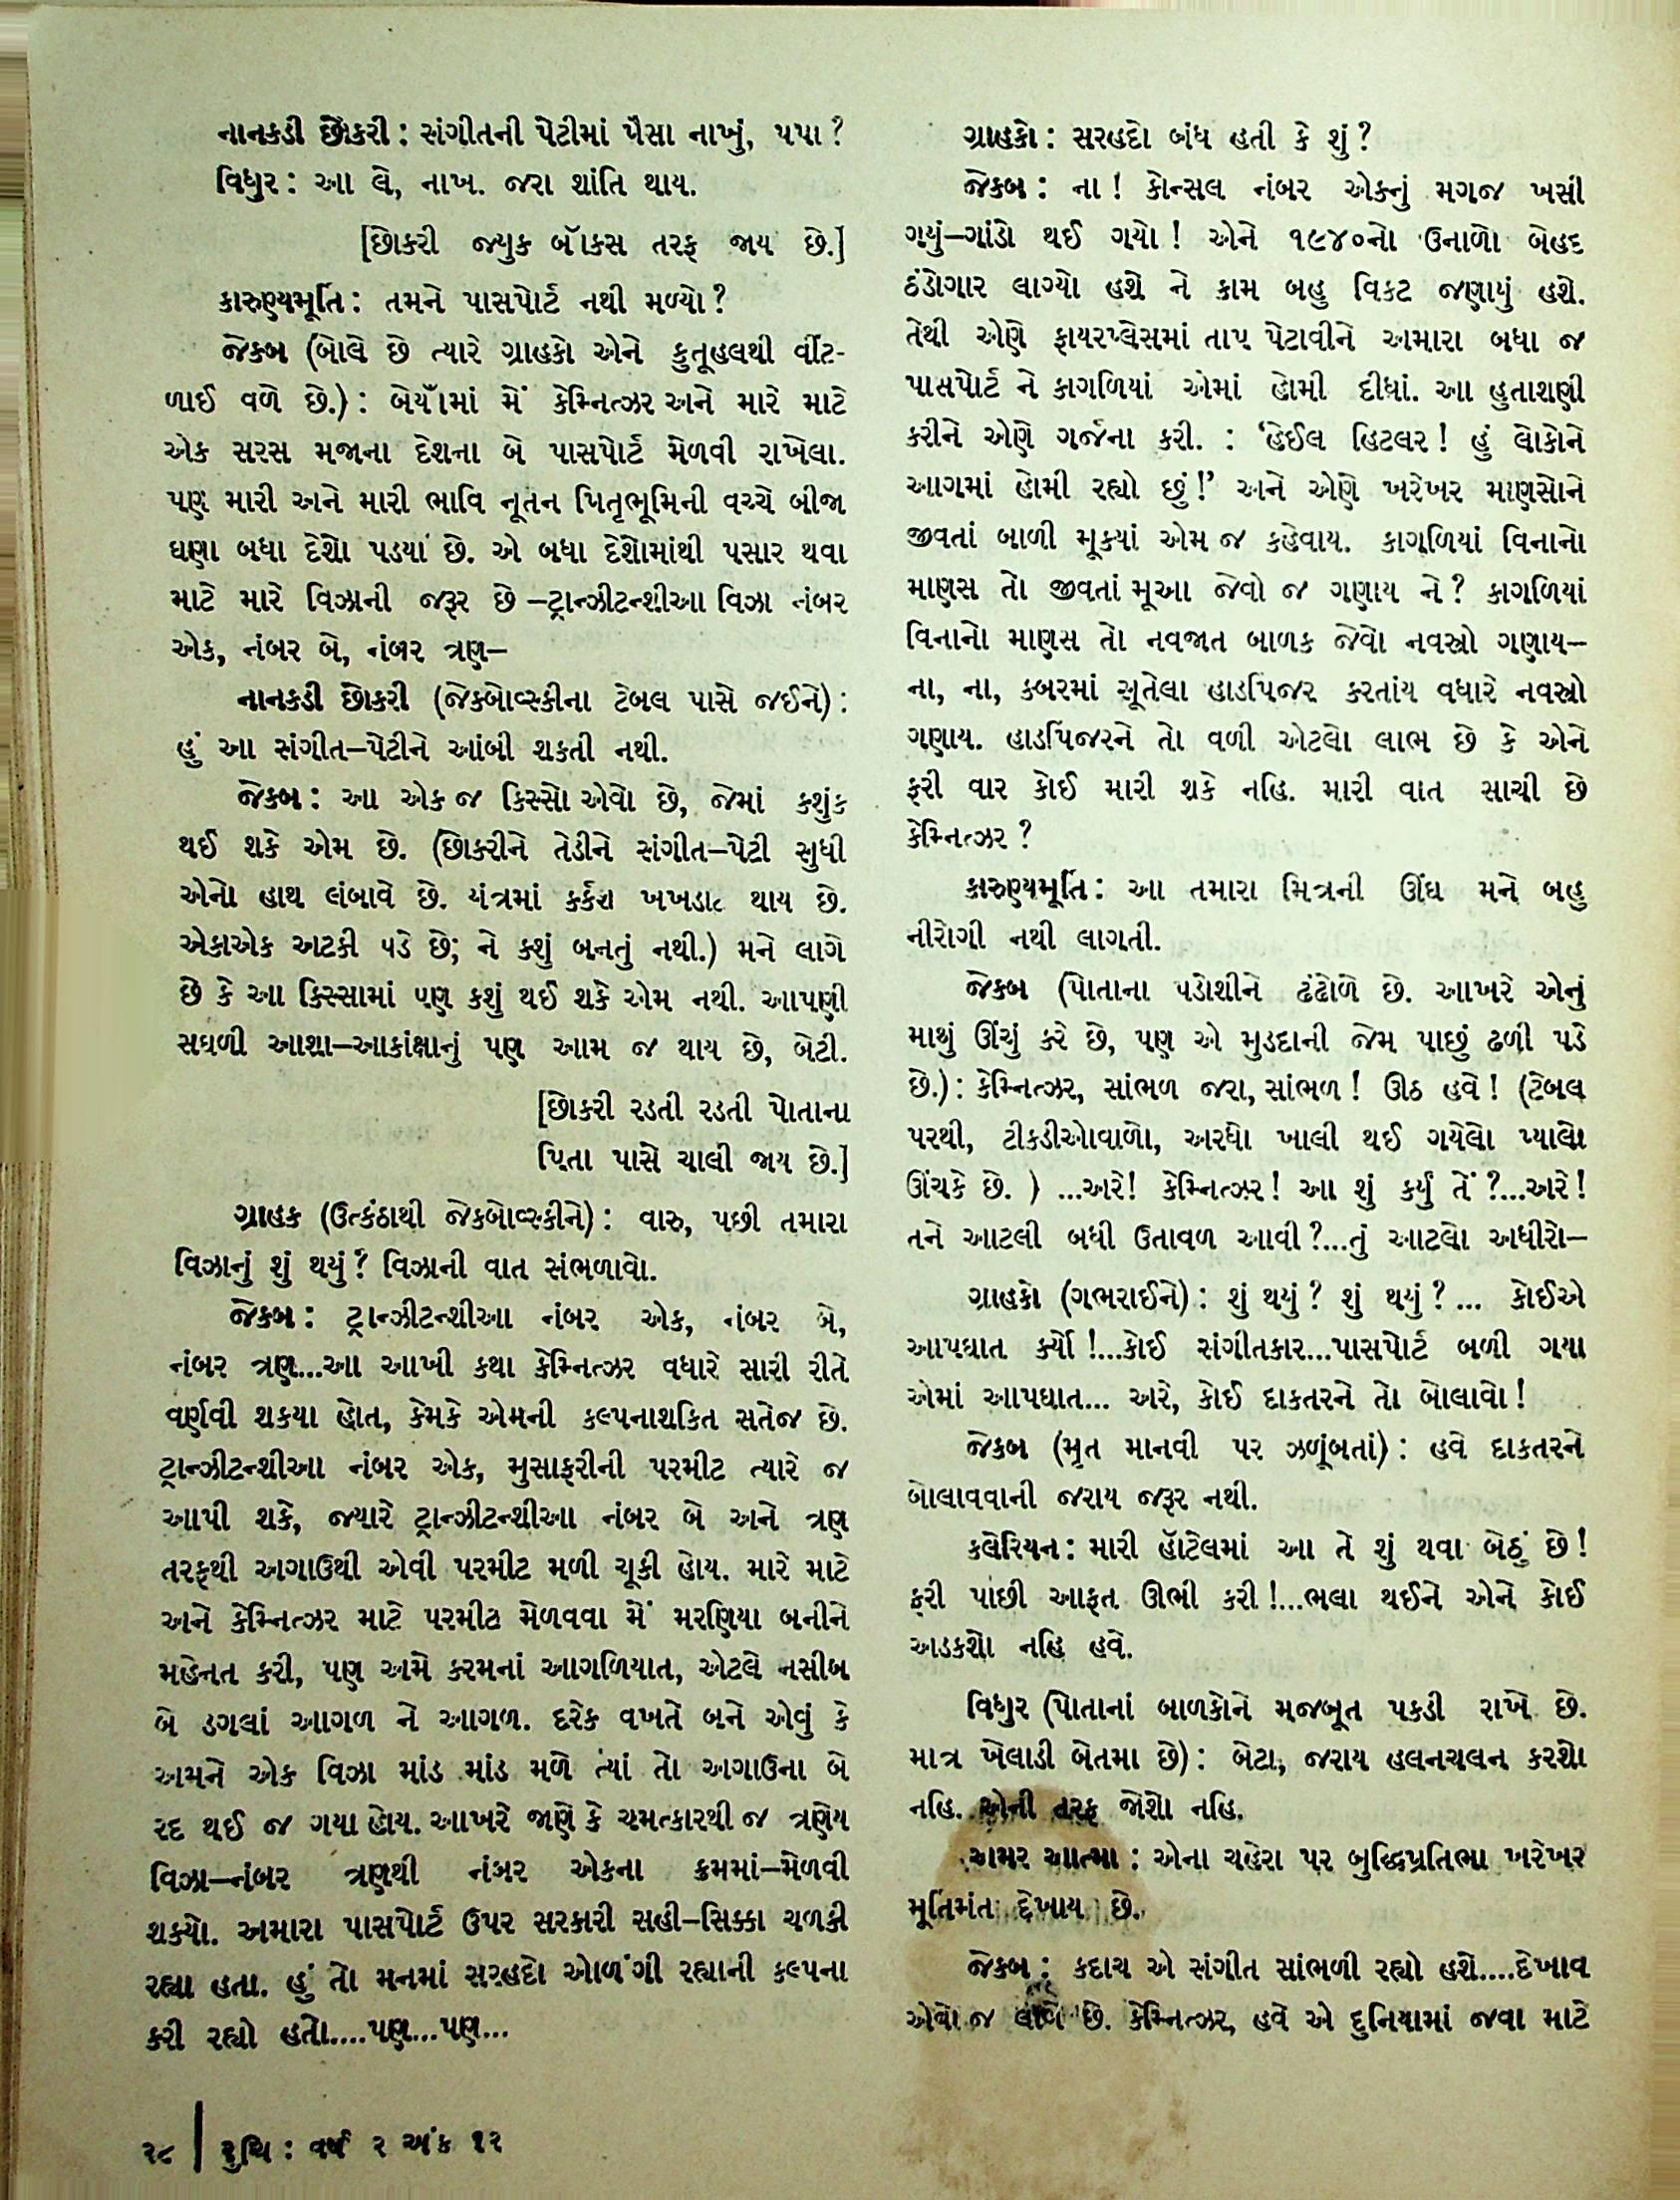 નાનકડી છોકરી : સંગીતની પેટીમાં પૈસા નાખું, પપા ?
વિધુર : આ લે, નાખ. જરા શાંતિ થાય.
[છોકરી જ્યુક બૉક્સ તરફ જાય છે.]
કારુણ્યમૂર્તિ : તમને પાસપોર્ટ નથી મળ્યો ?
જેકબ (બોલે છે ત્યારે ગ્રાહકો એને કુતૂહલથી વીંટ-
ળાઈ વળે છે.) : બેયોંમાં મેં કેમ્નિત્ઝર અને મારે માટે
એક સરસ મજાના દેશના બે પાસપોર્ટ મેળવી રાખેલા.
પણ મારી અને મારી ભાવિ નૂતન પિતૃભૂમિની વચ્ચે બીજા
ઘણા બધા દેશો પડ્યા છે. એ બધા દેશોમાંથી પસાર થવા
માટે મારે વિઝાની જરૂર છે –ટ્રાન્ઝીટન્શીઆ વિઝા નંબર
એક, નંબર બે, નંબર ત્રણ–
નાનકડી છોકરી (જેકબોવ્સ્કીના ટેબલ પાસે જઈને) :
હું આ સંગીત–પેટીને આંબી શકતી નથી.
જેકબ : આ એક જ કિસ્સો એવો છે, જેમાં કશુંક
થઈ શકે એમ છે. (છોકરીને તેડીને સંગીત–પેટી સુધી
એનો હાથ લંબાવે છે. યંત્રમાં કર્કશ ખખડાટ થાય છે.
એકાએક અટકી પડે છે; ને કશું બનતું નથી.) મને લાગે
છે કે આ કિસ્સામાં પણ કશું થઈ શકે એમ નથી. આપણી
સઘળી આશા–આકાંક્ષાનું પણ આમ જ થાય છે, બેટી.
[છોકરી રડતી રડતી પોતાના
પિતા પાસે ચાલી જાય છે.]
ગ્રાહક (ઉત્કંઠાથી જેકબોવ્સ્કીને) : વારુ, પછી તમારા
વિઝાનું શું થયું ? વિઝાની વાત સંભળાવો.
જેકબ : ટ્રાન્ઝીટન્શીઆ નંબર એક, નંબર બે,
નંબર ત્રણ...આ આખી કથા કેમ્નિત્ઝર વધારે સારી રીતે
વર્ણવી શક્યા હોત, કેમકે એમની કલ્પનાશક્તિ સતેજ છે.
ટ્રાન્ઝીટન્શીઆ નંબર એક, મુસાફરીની પરમીટ ત્યારે જ
આપી શકે, જ્યારે ટ્રાન્ઝીટન્શીઆ નંબર બે અને ત્રણ
તરફથી અગાઉથી એવી પરમીટ મળી ચૂકી હોય. મારે માટે
અને કેમ્નિત્ઝર માટે પરમીટ મેળવવા મેં મરણિયા બનીને
મહેનત કરી, પણ અમે કરમનાં આગળિયાત, એટલે નસીબ
બે ડગલાં આગળ ને આગળ. દરેક વખતે બને એવું કે
અમને એક વિઝા માંડ માંડ મળે ત્યાં તો અગાઉના બે
રદ થઈ જ ગયા હોય. આખરે જાણે કે ચમત્કારથી જ ત્રણેય
વિઝા–નંબર ત્રણથી નંબર એકના ક્રમમાં–મેળવી
શક્યો. અમારા પાસપોર્ટ ઉપર સરકારી સહી–સિક્કા ચળકી
રહ્યા હતા. હું તો મનમાં સરહદો ઓળંગી રહ્યાની કલ્પના
કરી રહ્યો હતો....પણ...પણ...
ગ્રાહકો : સરહદો બંધ હતી કે શું ?
જેકબ : ના ! કોન્સલ નંબર એકનું મગજ ખસી
ગયું–ગાંડો થઈ ગયો ! એને ૧૯૪૦નો ઉનાળો બેહદ
ઠંડોગાર લાગ્યો હશે ને કામ બહુ વિકટ જણાયું હશે.
તેથી એણે ફાયરપ્લેસમાં તાપ પેટાવીને અમારા બધા જ
પાસપોર્ટ ને કાગળિયાં એમાં હોમી દીધાં. આ હુતાશણી
કરીને એણે ગર્જના કરી. : ‘હેઈલ હિટલર ! હું લોકોને
આગમાં હોમી રહ્યો છું !’ અને એણે ખરેખર માણસોને
જીવતાં બાળી મૂક્યાં એમ જ કહેવાય. કાગળિયાં વિનાનો
માણસ તો જીવતાં મૂઆ જેવો જ ગણાય ને ? કાગળિયાં
વિનાનો માણસ તો નવજાત બાળક જેવો નવસ્ત્રો ગણાય–
ના, ના, કબરમાં સૂતેલા હાડપિંજર કરતાંય વધારે નવસ્ત્રો
ગણાય. હાડપિંજરને તો વળી એટલો લાભ છે કે એને
ફરી વાર કોઈ મારી શકે નહિ. મારી વાત સાચી છે
કેમ્નિત્ઝર ?
કારુણ્યમૂર્તિ : આ તમારા મિત્રની ઊંઘ મને બહુ
નીરોગી નથી લાગતી.
જેકબ (પોતાના પડોશીને ઢંઢોળે છે. આખરે એનું
માથું ઊંચું કરે છે, પણ એ મુડદાની જેમ પાછું ઢળી પડે
છે.) : કેમ્નિત્ઝર, સાંભળ જરા, સાંભળ ! ઊઠ હવે ! (ટેબલ
પરથી, ટીકડીઓવાળો, અરધો ખાલી થઈ ગયેલો પ્યાલો
ઊંચકે છે. ) ...અરે! કેમ્નિત્ઝર ! આ શું કર્યું તેં ?...અરે !
તને આટલી બધી ઉતાવળ આવી ?...તું આટલો અધીરો–
ગ્રાહકો (ગભરાઈને) : શું થયું ? શું થયું ? ... કોઈએ
આપઘાત કર્યો !...કોઈ સંગીતકાર...પાસપોર્ટ બળી ગયા
એમાં આપઘાત... અરે, કોઈ દાકતરને તો બોલાવો !
જેકબ (મૃત માનવી પર ઝળૂંબતાં) : હવે દાકતરને
બોલાવવાની જરાય જરૂર નથી.
કલેરિયન : મારી હૉટેલમાં આ તે શું થવા બેઠું છે !
ફરી પાછી આફત ઊભી કરી !...ભલા થઈને એને કોઈ
અડકશો નહિ હવે.
વિધુર (પોતાનાં બાળકોને મજબૂત પકડી રાખે છે.
માત્ર ખેલાડી બેતમા છે) : બેટા, જરાય હલનચલન કરશો
નહિ. એની તરફ જોશો નહિ.
અમર આત્મા : એના ચહેરા પર બુદ્ધિપ્રતિભા ખરેખર
મૂર્તિમંત દેખાય છે.
જેકબ : કદાચ એ સંગીત સાંભળી રહ્યો હશે....દેખાવ
એવો જ છે. કેમ્નિત્ઝર, હવે એ દુનિયામાં જવા માટે
૨૮ | રુચિ : વર્ષ ૨ અંક ૧૨